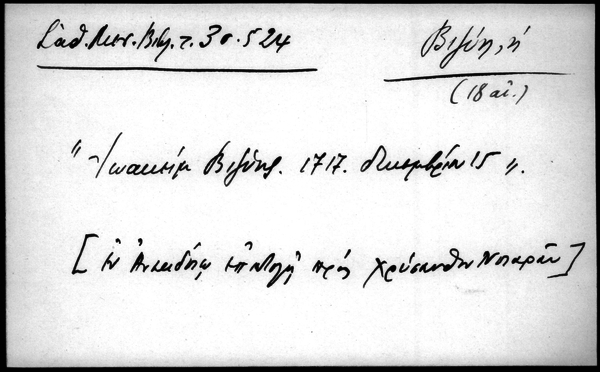 Σαθ. Μεσ. Βιβ. τ. 3 σ. 524
Βιζύη, ἡ
(18 αἰ.)
"Ἰωακεὶμ Βιζύης. 1717. δεκεμβρίου 15".
[ἐν ἀνεκδότῳ ἐπιστολῇ πρός Χρύσανθον Νοταρᾶν]